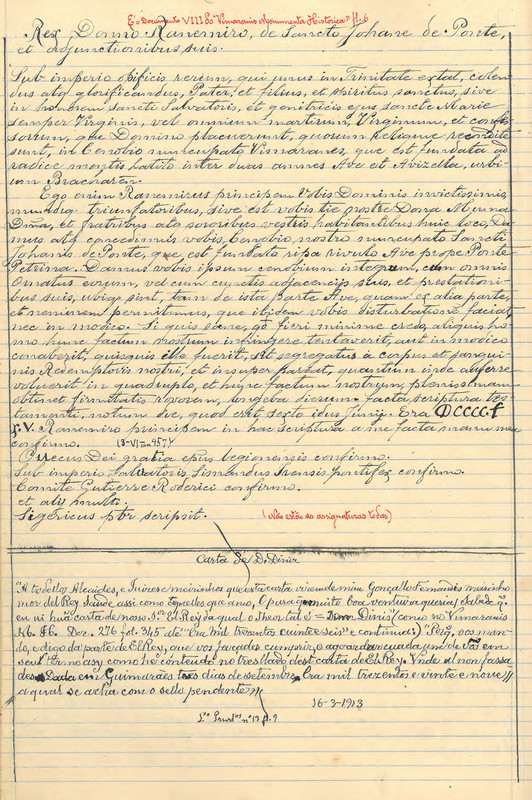 É o Documento VIII do Vimaranis Monumenta Historica fl. 6
Rex Domno Ranemiro, de Sancto Johane de Ponte,
et adjunctionibus suis.
Sub imperio opificis rerum, qui unus in Trinitate extat, colen
dus atq glorificandus, Pater, et filius, et spiritus sanctus, sive
in honorem sancti Salvatoris, et genitricis ejus sancte Marie
semper Virginis, vel omnium martirum, Virginum, et confes
sorum, que Domino placuerunt, quorum reliquie recondite
sunt, in Cenobio nuncupato Vimaranes, que est fundata ad
radice montis Latito inter duas amnes Ave et Avizella, urbi
um Bracharen.
Ego enim Ranemirus principem Vobis Dominis invictissimis
mundiq triumfatoribus, sive est vobis tie nostre Dona Muma
Dma, et fratribus atq sororibus vestris habitantibus huic loco, Da
mus atq concedimus vobis, Cenobio nostro nuncupato Sancti
Johanis de Ponte, que, est fundato ripa rivulo Ave prope Ponte
Petrina. Damus vobis ipsum cenobium integrum, cum omnis
Ornatus eorum, vel cum cunctis adjacencijs suis, et prestationi
bus suis, ubiq sint, tam de ista parte Ave, quam ex alia parte,
et neminem permitimus, que ibidem vobis disturbatione faciat
nec in modico. Si quis sane, qd fieri minime credo, aliquis ho
mo hunc factum nostrum infringere tentaverit, aut in modico
conaberit, quisquis ille fuerit, sit segregatus a corpus et sangui
nis Redemptoris nostri, et insuper pariat, quantum inde auferre
voluerit in quadruplo, et hunc factum nostrum, plenissimam
obtineat firmitatis roborem, ungeba dierum. facta scriptura tes
tamenti, notum die, quod erit sexto idus Junij. Era DCCCCL
x.V. Ranemiro principem in hac scriptura a me facta manu mea
confirmo. (8-VI an 957)
Oveccus Dei gratia epus legionensis confirmo.
Sub imperio Salvatoris, Sisnandus Irensis pontifex confirmo.
Comite Gutierre Roderici confirmo.
et alij multi.
Sigericus pbr scripsit. (Não estão as assignaturas todas)
Carta de D. Diniz
"A todollos Alcaides, e Juizes e meirinhos que esta carta virende mim Gonçallo Fernandes meirinho
mor del Rey Saude, assi como aquelles que amo, e pera que muito boa ventura queria; Sabede q
eu vi huã carta de nosso Sr. El Rey da qual o Theor tal é = Donor Dinis (como no Vimaranis
Doc. 276 fol. 345 até "Era mil trezentos cuinteseis" e continua;) "Porq, vos man-
do, e digo da parte de El Rey, que vos façades cumprir, e agoardar cuada uni de vós em
seul termo asy como he conteudo no tresllado desta carta de El Rey. Unde al non fassa
des. Dada em Guimarães tres dias de setembro. Era mil trezentos e vinte e nove //
a qual se acha com o sello pendente //
16-3-1913
nº 17 fl. 9